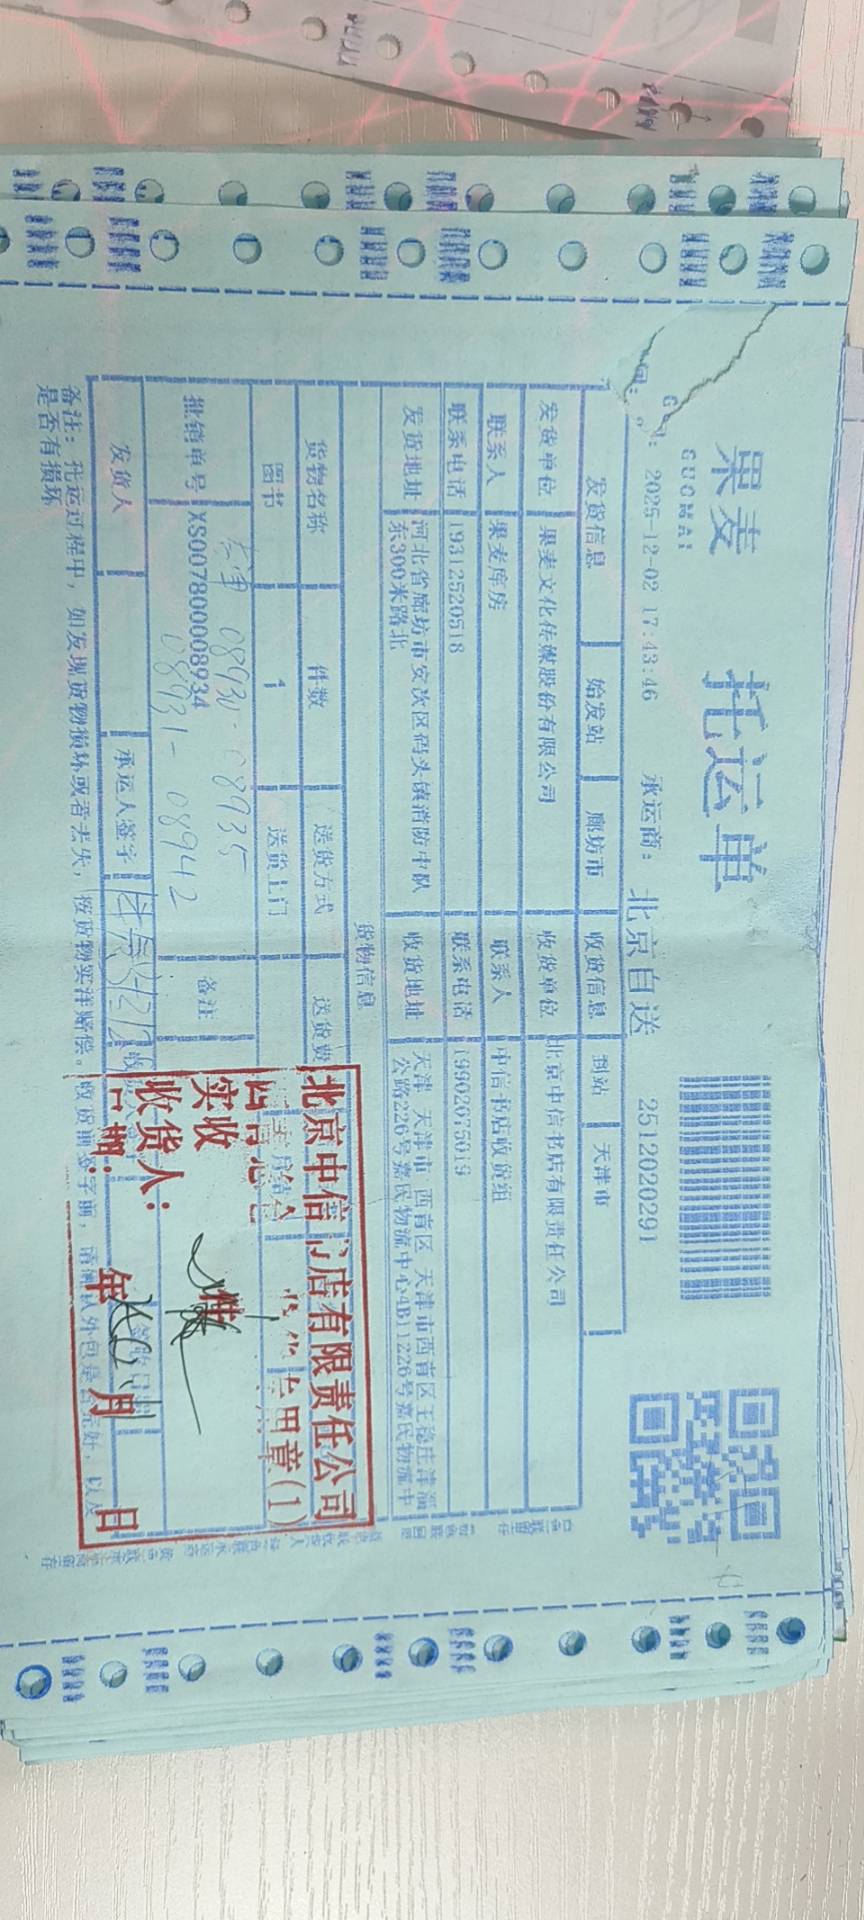 果麦
GUOMAI
托运单
2512020291
2025-12-02 17:43:46 承运商： 北京自送
发货信息 始发站 廊坊市 收货信息 到站 天津市
发货单位 果麦文化传媒股份有限公司 收货单位 北京中信书店有限责任公司
联系人 果麦库房 联系人 中信书店收货组
联系电话 19312520518 联系电话 19902075019
发货地址 河北省廊坊市安次区码头镇消防中队东300米路北 收货地址 天津 天津市 西青区 天津市西青区王稳庄津淄公路226号嘉民物流中心4B11226号嘉民物流中
货物信息
货物名称 件数 送货方式 送货费
图书 1 送货上门
批销单号 XS007800008934 备注
天津 08930-08935
08931-08942
发货人 承运人签字
备注：托运过程中，如发现货物损坏或者丢失，按货物实洋赔偿。收货前签字前，请确认外包是否完好，以及是否有损坏
北京中信书店有限责任公司
收货专用章(1)
实收
收货人：
日期： 年 月 日